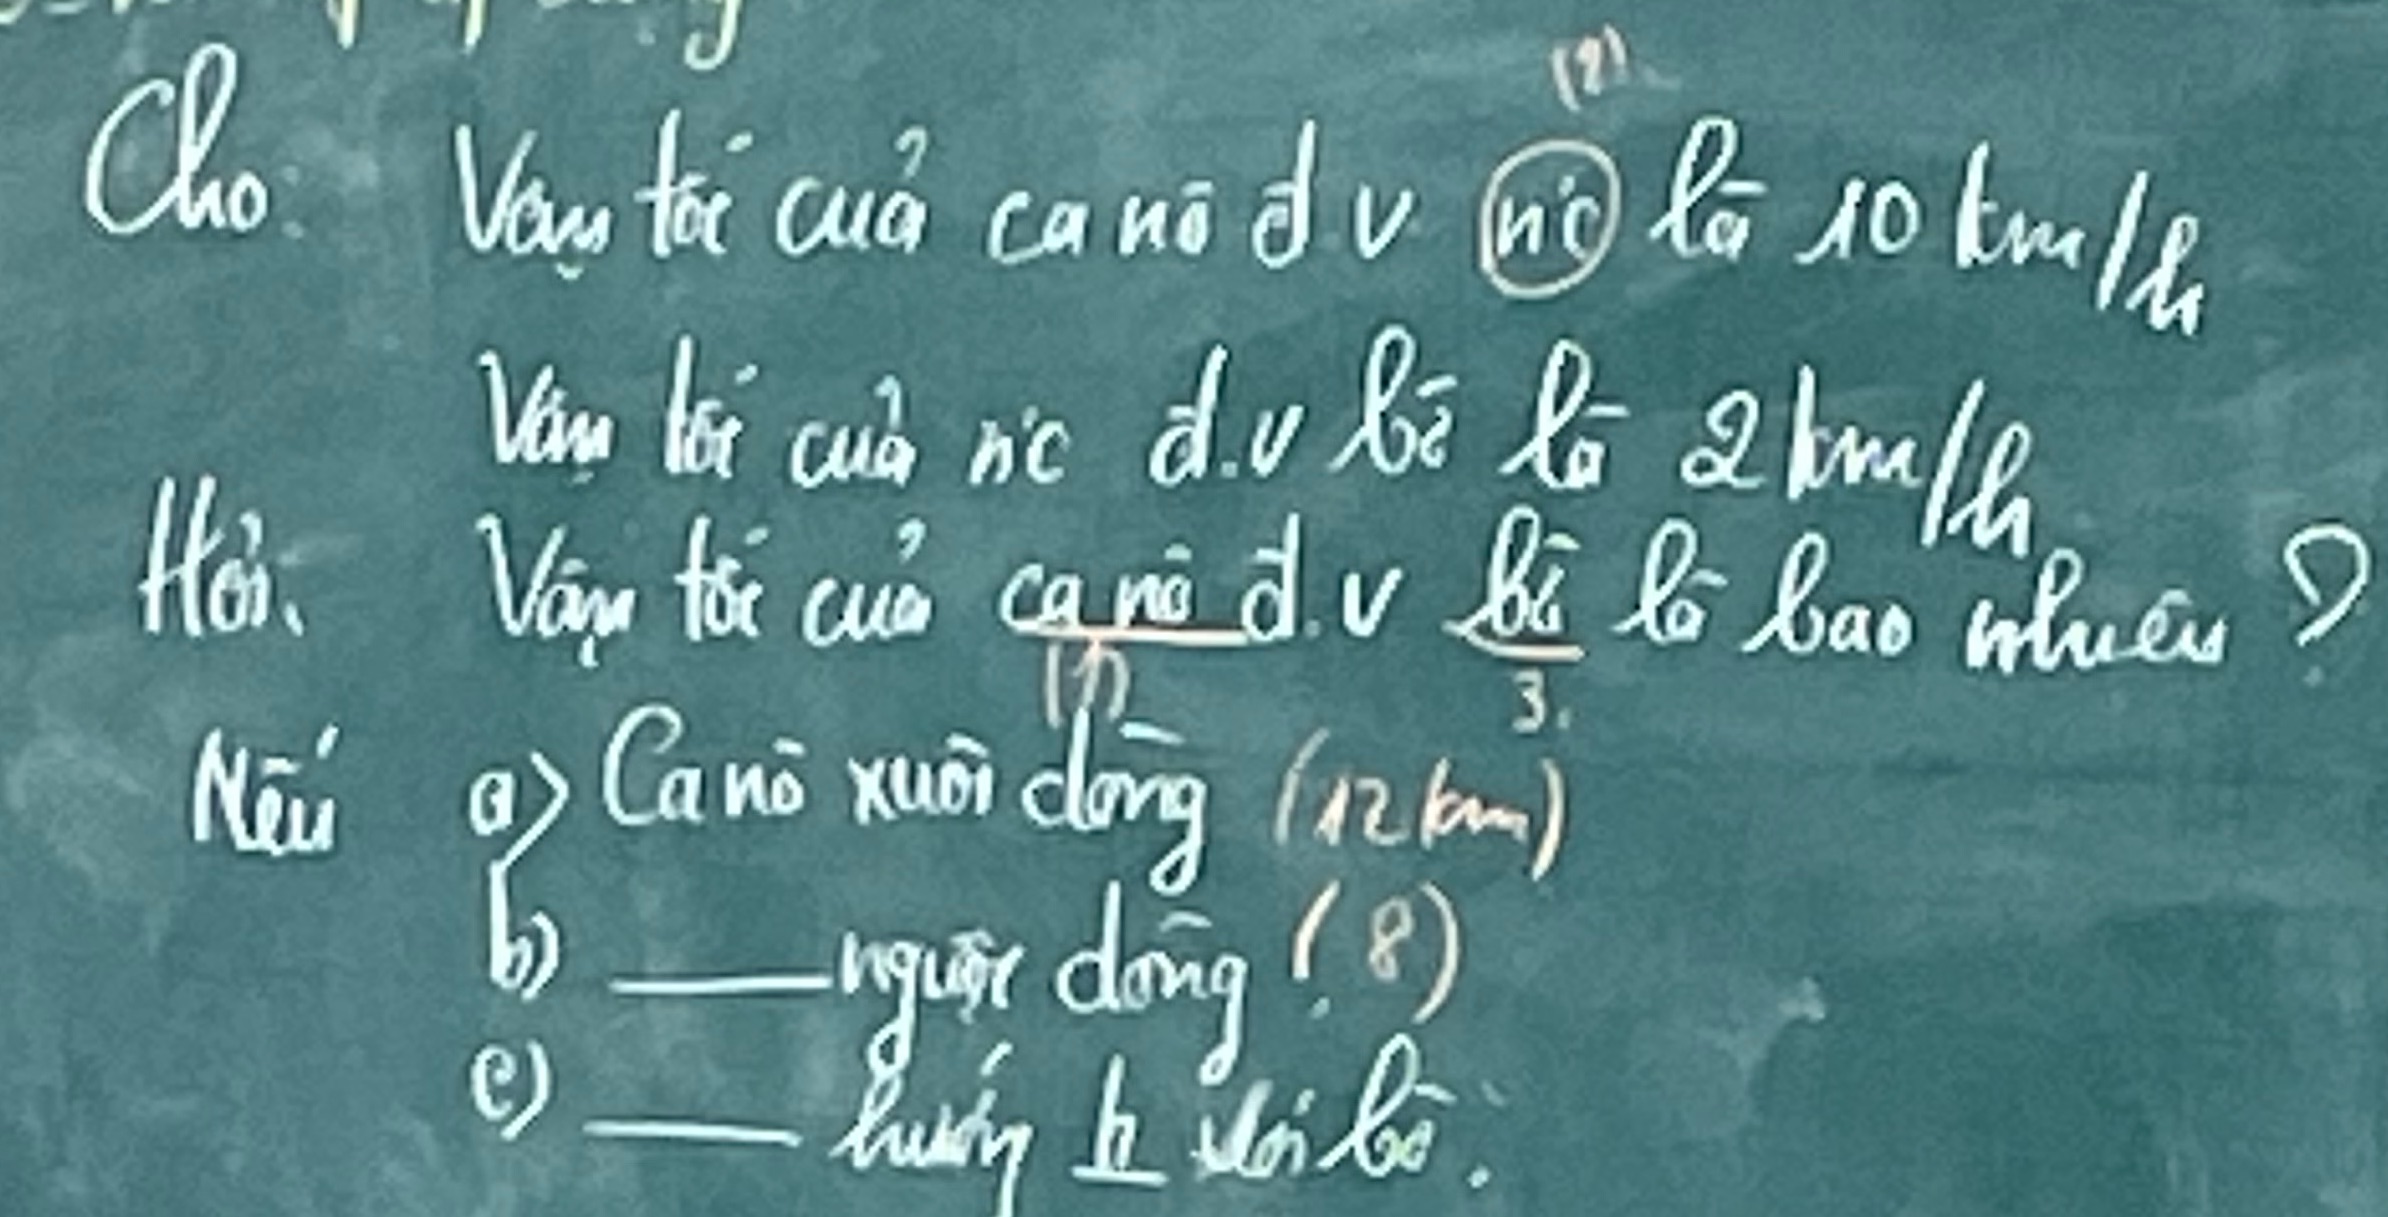 (2)
Cho: Vận tốc của ca nô đ.v n'c là 10 km/h
Vận tốc của n'c đ.v bờ là 2 km/h
Hỏi. Vận tốc của ca nô đ.v bờ là bao nhiêu ?
(1) 3.
Nếu a) Ca nô xuôi dòng (12 km)
b) ___ ngược dòng. (8)
c) ___ hướng ⊥ với bờ.